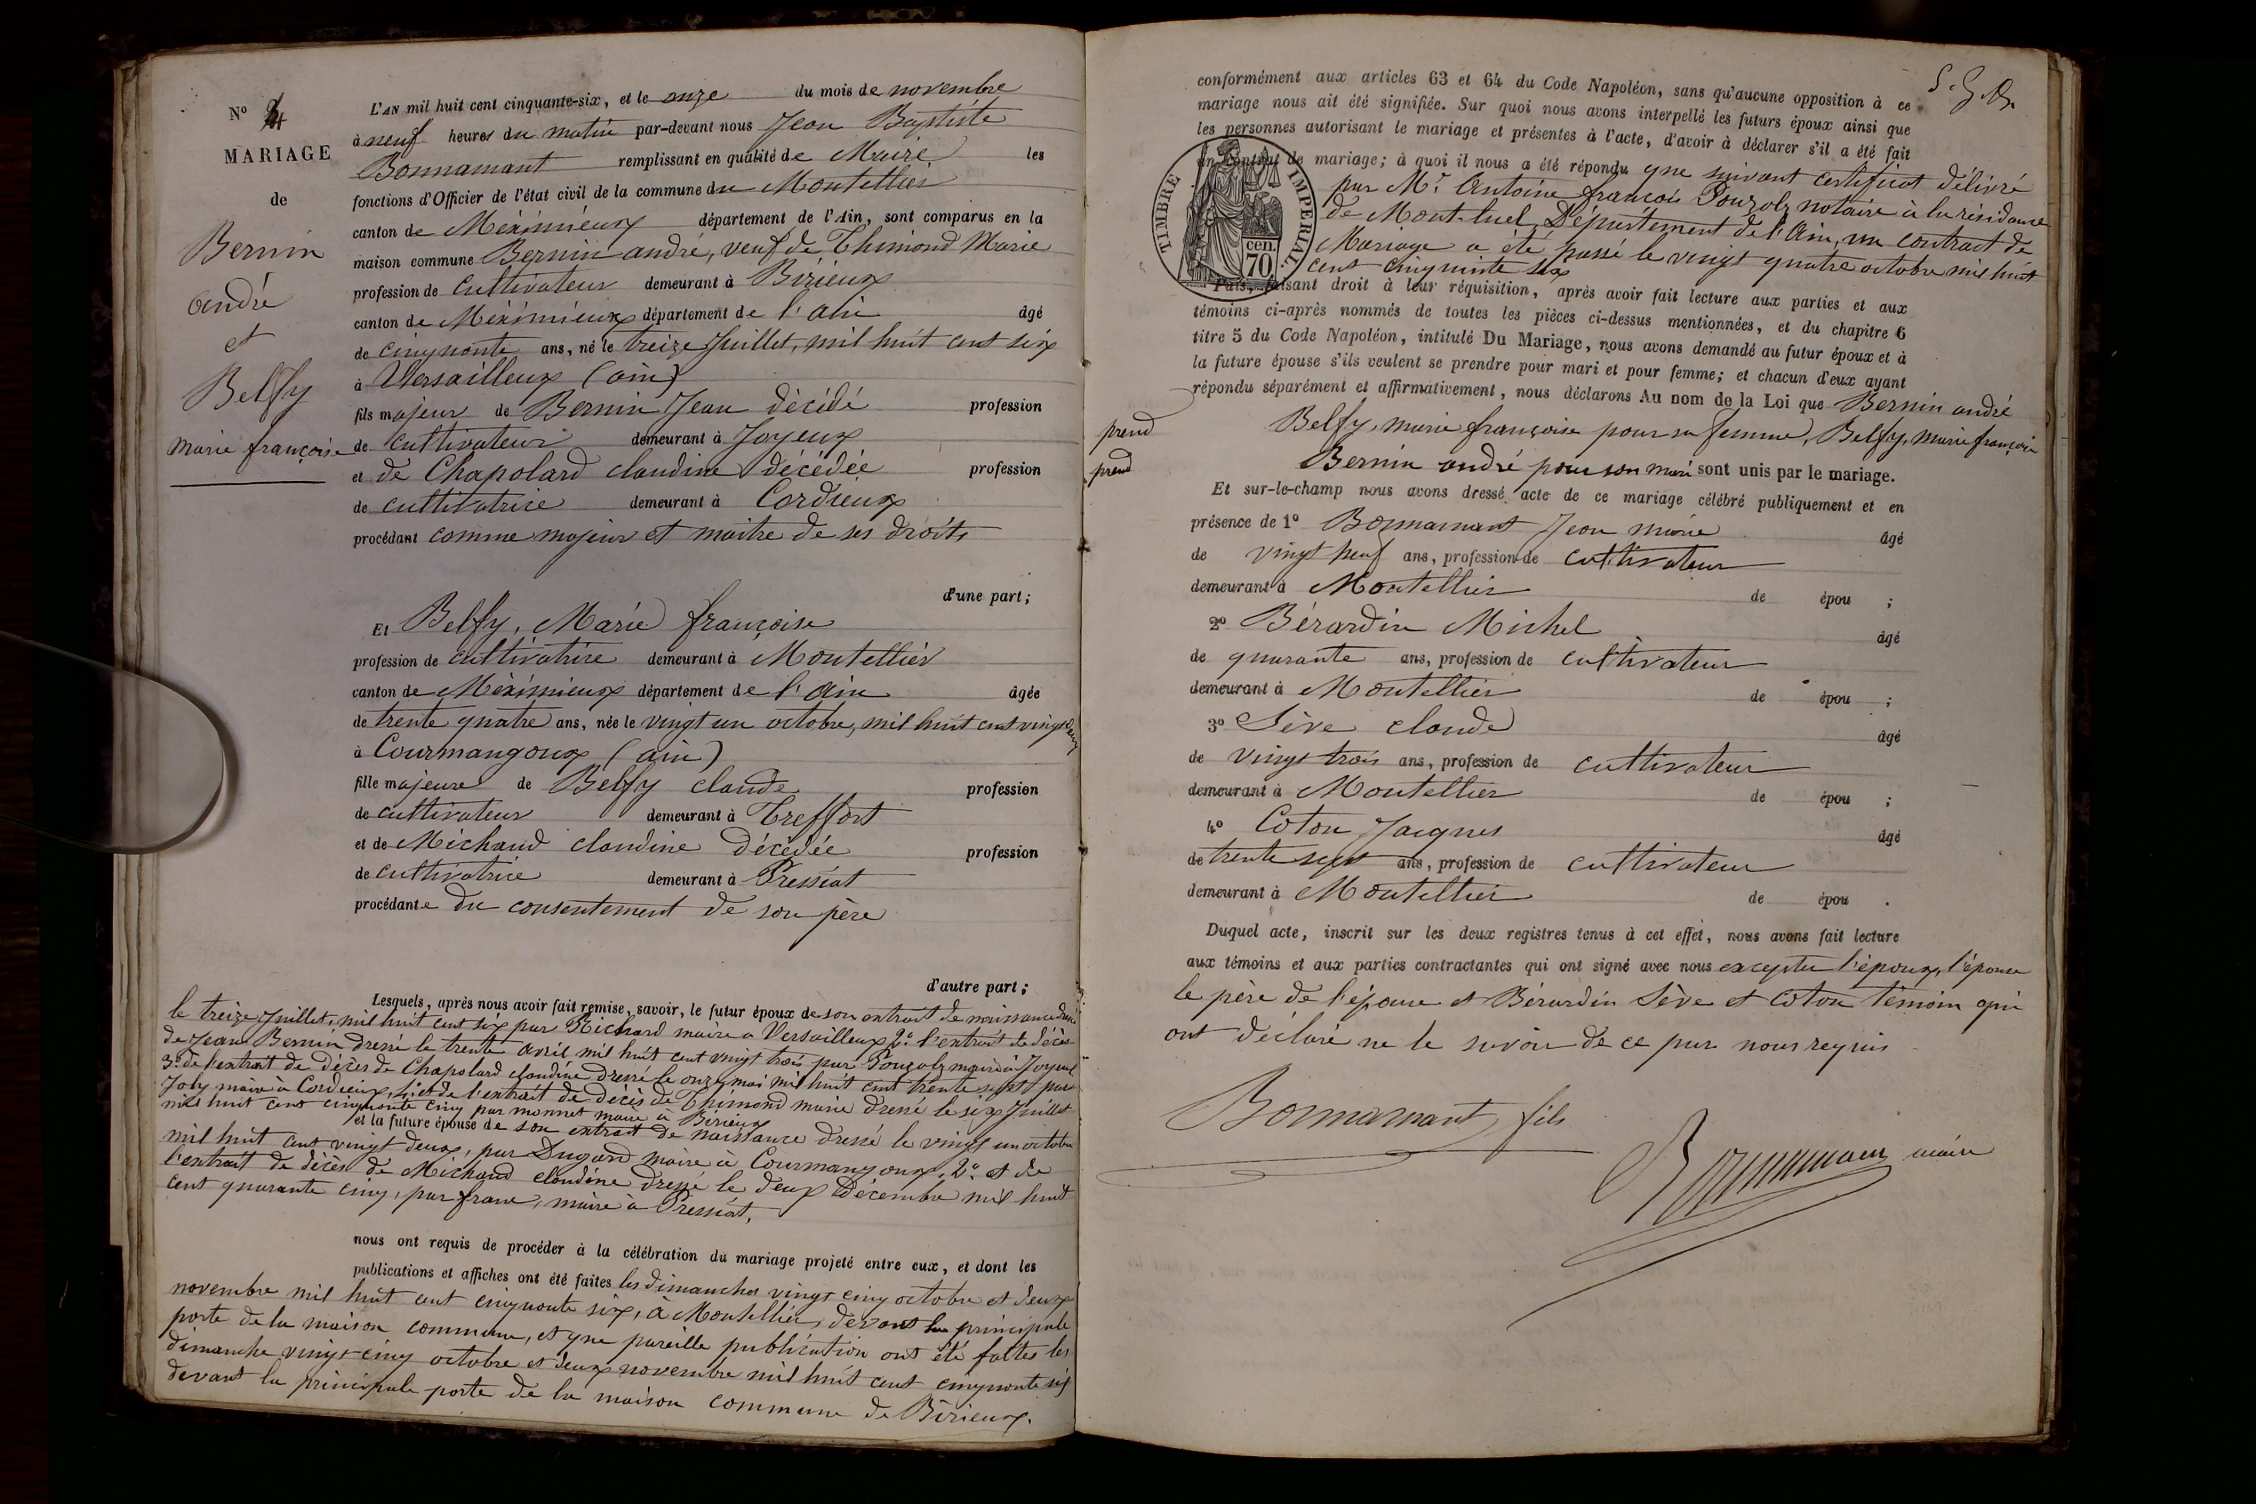 N° 4
MARIAGE
de
Bernin
andré
et
Belfy
marie françoise
L'AN mil huit cent cinquante-six, et le onze du mois de novembre
à neuf heures du matin par-devant nous Jean Baptiste
Bonnamant remplissant en qualité de Maire les
fonctions d'Officier de l'état civil de la commune du Montellier
canton de Méximieux département de l'Ain, sont comparus en la
maison commune Bernin andré, veuf de Thimond Marie
profession de cultivateur demeurant à Birieux
canton de Méximieux département de l'ain âgé
de cinquante ans, né le treize Juillet, mil huit cent six
à Versailleux (ain)
fils majeur de Bernin Jean décédé profession
de cultivateur demeurant à Joyeux
et de Chapolard claudine décédée profession
de cultivatrice demeurant à Cordieux
procédant comme majeur et maitre de ses droits
d'une part;
Et Belfy, Marie françoise
profession de cultivatrice demeurant à Montellier
canton de Méximieux département de l'ain âgée
de trente quatre ans, née le vingt un octobre, mil huit cent vingt deux
à Courmangoux (ain)
fille majeure de Belfy claude profession
de cultivateur demeurant à Treffort
et de Michaud claudine décédée profession
de cultivatrice demeurant à Pressiat
procédante du consentement de son père
d'autre part;
Lesquels, après nous avoir fait remise, savoir, le futur époux de son extrait de naissance
le treize Juillet, mil huit cent six par Richard maire a Versailleux 2° l'extrait de décès
de Jean Bernin dressé le trente avril mil huit cent vingt trois par Pouzolz maire à Joyeux
3° de l'extrait de décès de Chapolard claudine dressé le onze mai mil huit cent trente sept par
Joly maire à Cordieux, 4° et de l'extrait de décès de Thimond marie dressé le six Juillet
mil huit cent cinquante cinq par monnet maire à Birieux
et la future épouse de son extrait de naissance dressé le vingt un octobre
mil huit cent vingt deux, par Dugard maire à Courmangoux, 2° et de
l'extrait de décès de Michaud claudine dressé le deux Décembre mil huit
cent quarante cinq, par franc, maire à Pressiat,
nous ont requis de procéder à la célébration du mariage projeté entre eux, et dont les
publications et affiches ont été faites les dimanches vingt cinq octobre et deux
novembre mil huit cent cinquante six, à Montellier, devant la principale
porte de la maison commune, et que pareille publication ont été faites les
dimanche vingt cinq octobre et deux novembre mil huit cent cinquante six
devant la principale porte de la maison commune de Birieux.
conformément aux articles 63 et 64 du Code Napoléon, sans qu'aucune opposition à ce
mariage nous ait été signifiée. Sur quoi nous avons interpellé les futurs époux ainsi que
les personnes autorisant le mariage et présentes à l'acte, d'avoir à déclarer s'il a été fait
un contrat de mariage; à quoi il nous a été répondu que suivant certificat délivré
par Mr Antoine françois Pouzolz notaire à la résidance
de Mont-luel, Département de l'Ain, un contract de
Mariage a été passé le vingt quatre octobre mil huit
cent cinquante six
TIMBRE IMPERIAL.
cen.
70
Puis, faisant droit à leur réquisition, après avoir fait lecture aux parties et aux
témoins ci-après nommés de toutes les pièces ci-dessus mentionnées, et du chapitre 6
titre 5 du Code Napoléon, intitulé Du Mariage, nous avons demandé au futur époux et à
la future épouse s'ils veulent se prendre pour mari et pour femme; et chacun d'eux ayant
répondu séparément et affirmativement, nous déclarons Au nom de la Loi que Bernin andré
prend Belfy, marie françoise pour sa femme, Belfy, marie françoise
prend Bernin andré pour son mari sont unis par le mariage.
Et sur-le-champ nous avons dressé acte de ce mariage célébré publiquement et en
présence de 1° Bonnamant Jean marie âgé
de vingt neuf ans, profession de cultivateur
demeurant à Montellier de épou ;
2° Bérardin Michel âgé
de quarante ans, profession de cultivateur
demeurant à Montellier de épou ;
3° Sève claude âgé
de vingt trois ans, profession de cultivateur
demeurant à Montellier de épou ;
4° Coton Jacques âgé
de trente sept ans, profession de cultivateur
demeurant à Montellier de épou .
Duquel acte, inscrit sur les deux registres tenus à cet effet, nous avons fait lecture
aux témoins et aux parties contractantes qui ont signé avec nous excepter l'époux, l'épouse
le père de l'épouse et Bérardin Sève et Coton témoin qui
ont déclaré ne le savoir de ce par nous requis
Bonnamant fils
Bonnamant maire